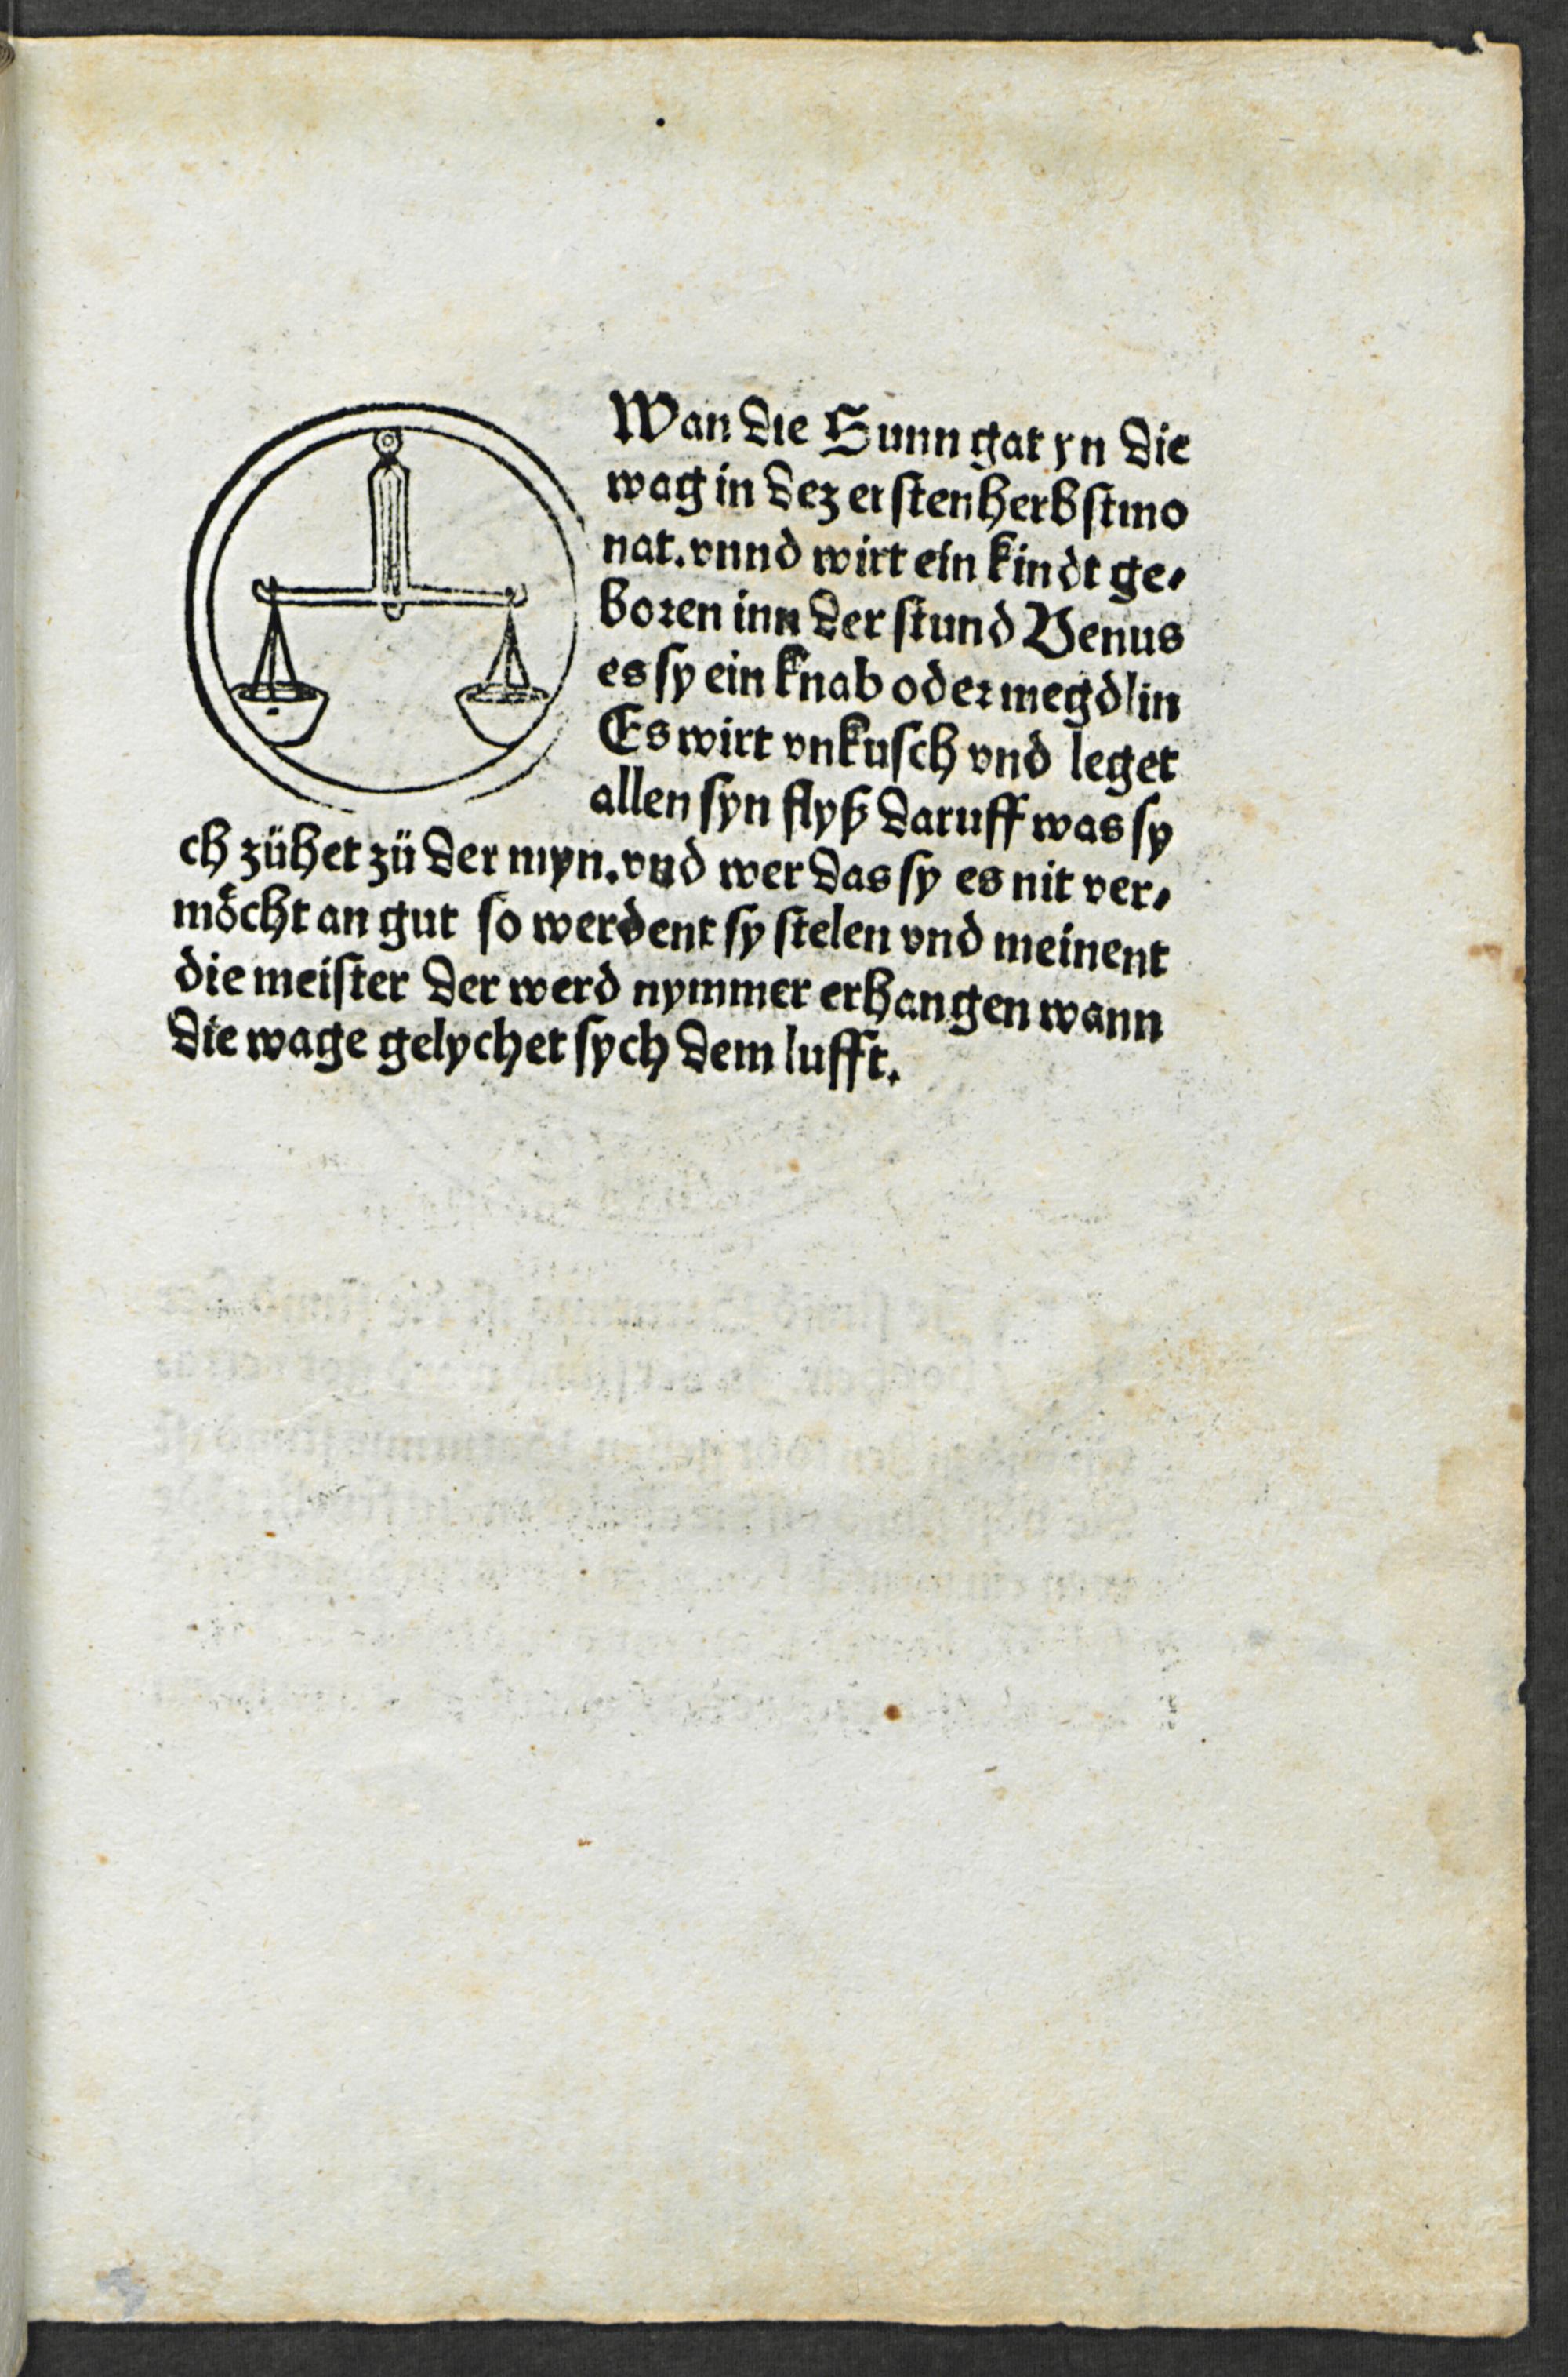 Wan die Sunn gat yn die
wag in dez ersten herbstmo
nat. vnnd wirt ein kindt ge⸗
boren inn der stund Venus
es sy ein knab oder megdlin
Es wirt vnkusch vnd leget
allen syn flyß daruff was sy
ch zühet zü der myn. vnd wer das sy es nit ver⸗
möcht an gut so werdent sy stelen vnd meinent
die meister der werd nymmer erhangen wann
die wage gelychet sych dem lufft.